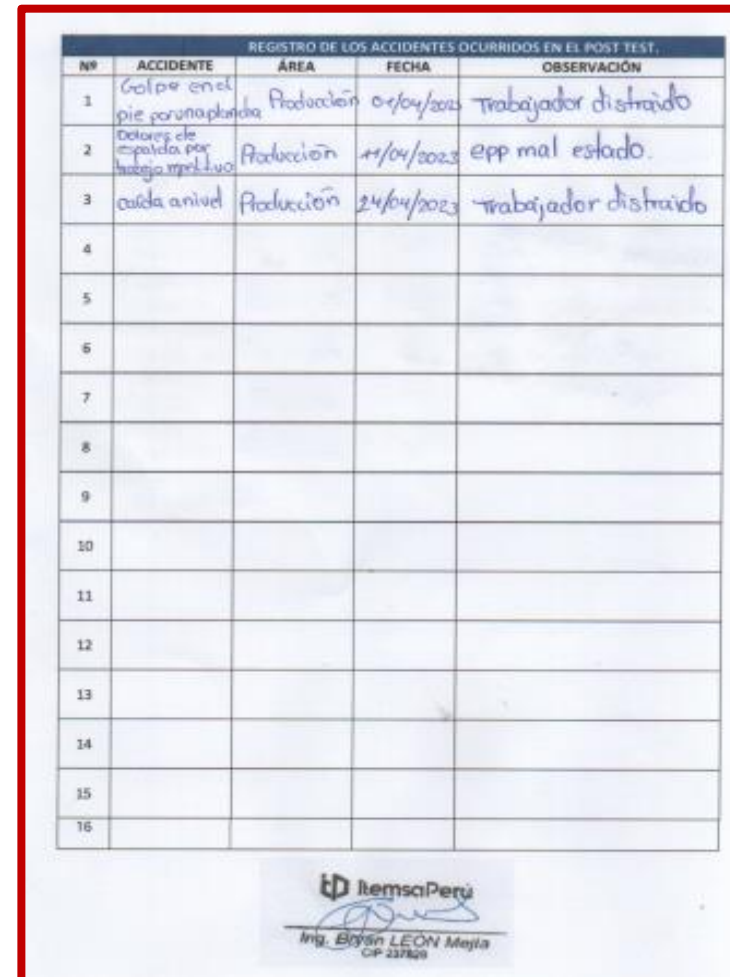 REGISTRO DE LOS ACCIDENTES OCURRIDOS EN EL POST TEST.
Nº ACCIDENTE ÁREA FECHA OBSERVACIÓN
1 Golpe en el pie por una plancha Producción 01/04/2023 Trabajador distraido
2 Dolores de espalda por trabajo repetitivo Producción 11/04/2023 epp mal estado.
3 caída a nivel Producción 24/04/2023 Trabajador distraido
4
5
6
7
8
9
10
11
12
13
14
15
16
ItemsaPerú
Ing. Bryan LEÓN Mejía
CIP 237829